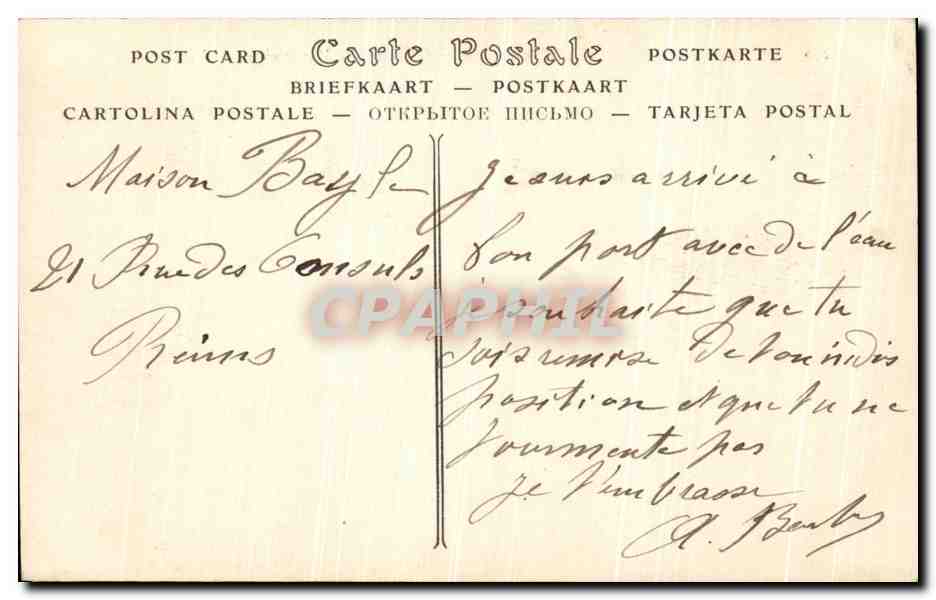 POST CARD Carte Postale POSTKARTE
BRIEFKAART — POSTKAART
CARTOLINA POSTALE — ОТКРЫТОЕ ПИСЬМО — TARJETA POSTAL
Maison Bayle
21 Rue des Consuls
Reims
Je suis arrivé à
bon port avec de l'eau
je souhaite que tu
sois remise de ton indis
position et que tu ne
tourmente pas
Je t'embrasse
A.
CPAPHIL